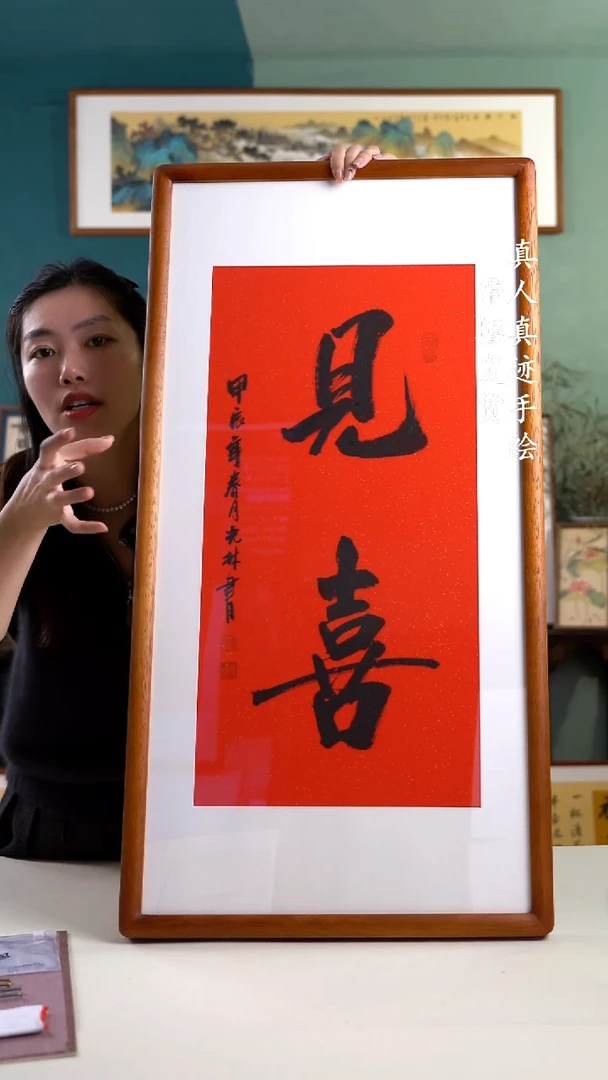 見
喜
甲辰年春月光林書
真人真迹手绘